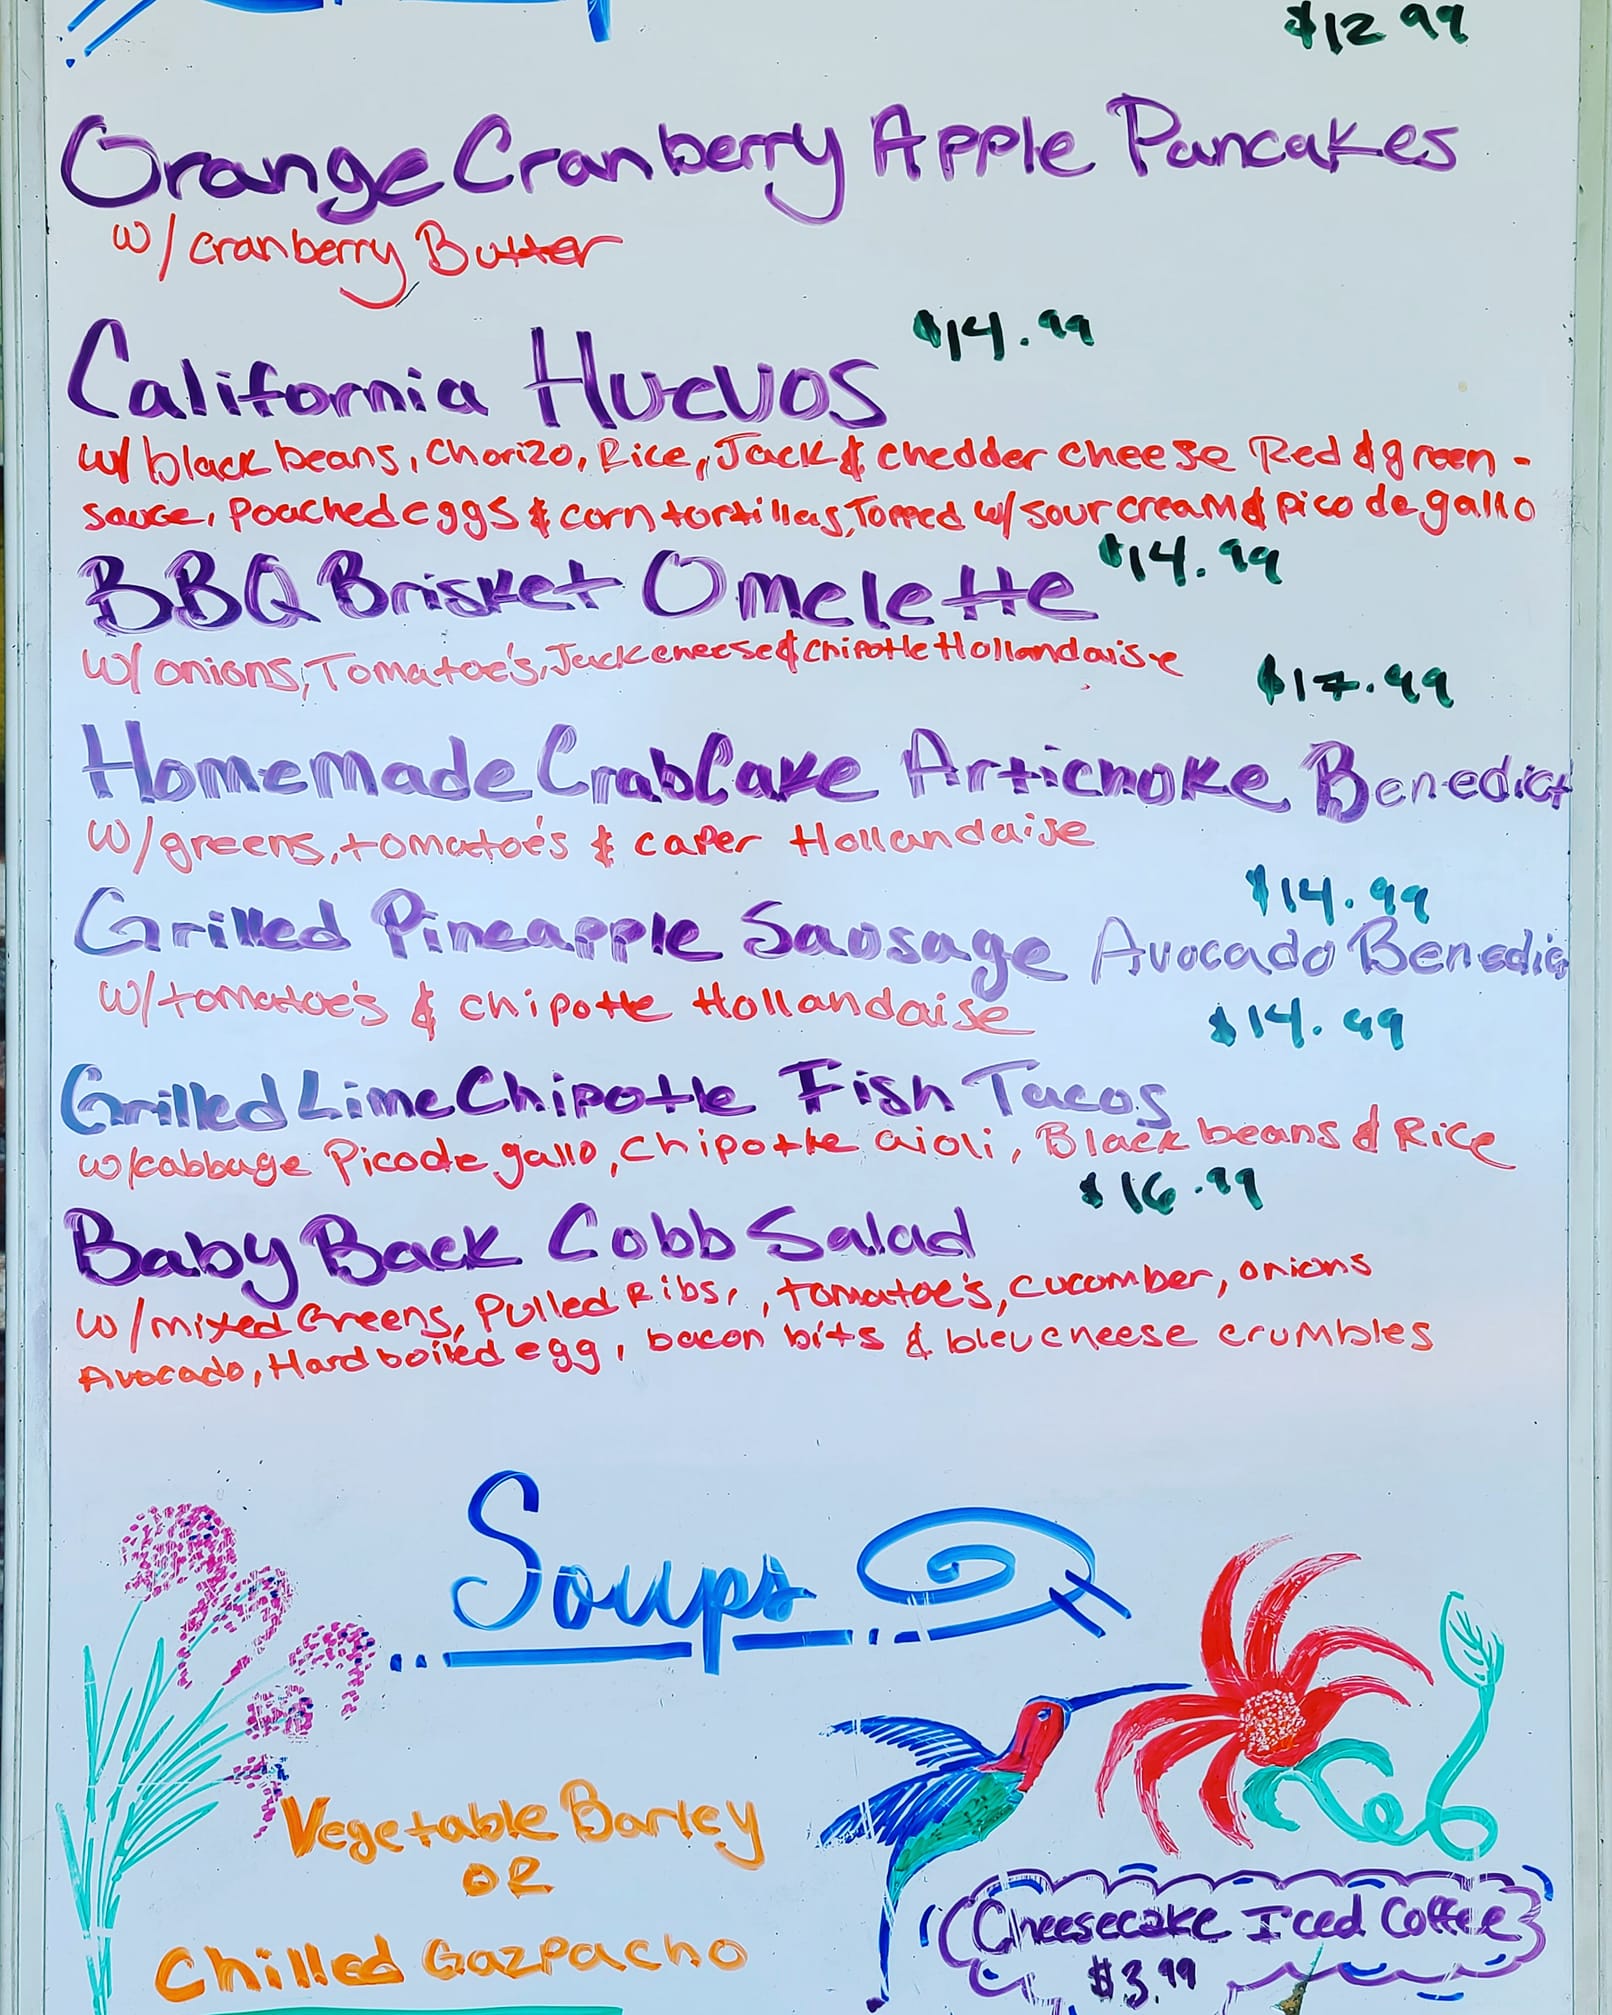 $12.99
Orange Cranberry Apple Pancakes
w/ cranberry Butter
$14.99
California Huevos
w/ black beans, Chorizo, Rice, Jack & chedder cheese Red & green -
sauce, Poached eggs & corn tortillas, Topped w/ sour cream & pico de gallo
$14.99
BBQ Brisket Omelette
w/ onions, Tomatoe's, Jack cheese & Chipotle Hollandaise
$17.99
Homemade Crab Cake Artichoke Benedict
w/ greens, tomatoe's & caper Hollandaise
$14.99
Grilled Pineapple Sausage Avocado Benedic
w/ tomatoe's & chipotle Hollandaise
$14.99
Grilled Lime Chipotle Fish Tacos
w/ cabbage Pico de gallo, Chipotle aioli, Black beans & Rice
$16.99
Baby Back Cobb Salad
w/ mixed Greens, Pulled Ribs, , tomatoe's, cucumber, onions
Avocado, Hard boiled egg, bacon bits & bleu cheese crumbles
Soups
Vegetable Barley
OR
Chilled Gazpacho
Cheesecake Iced Coffee
$3.99